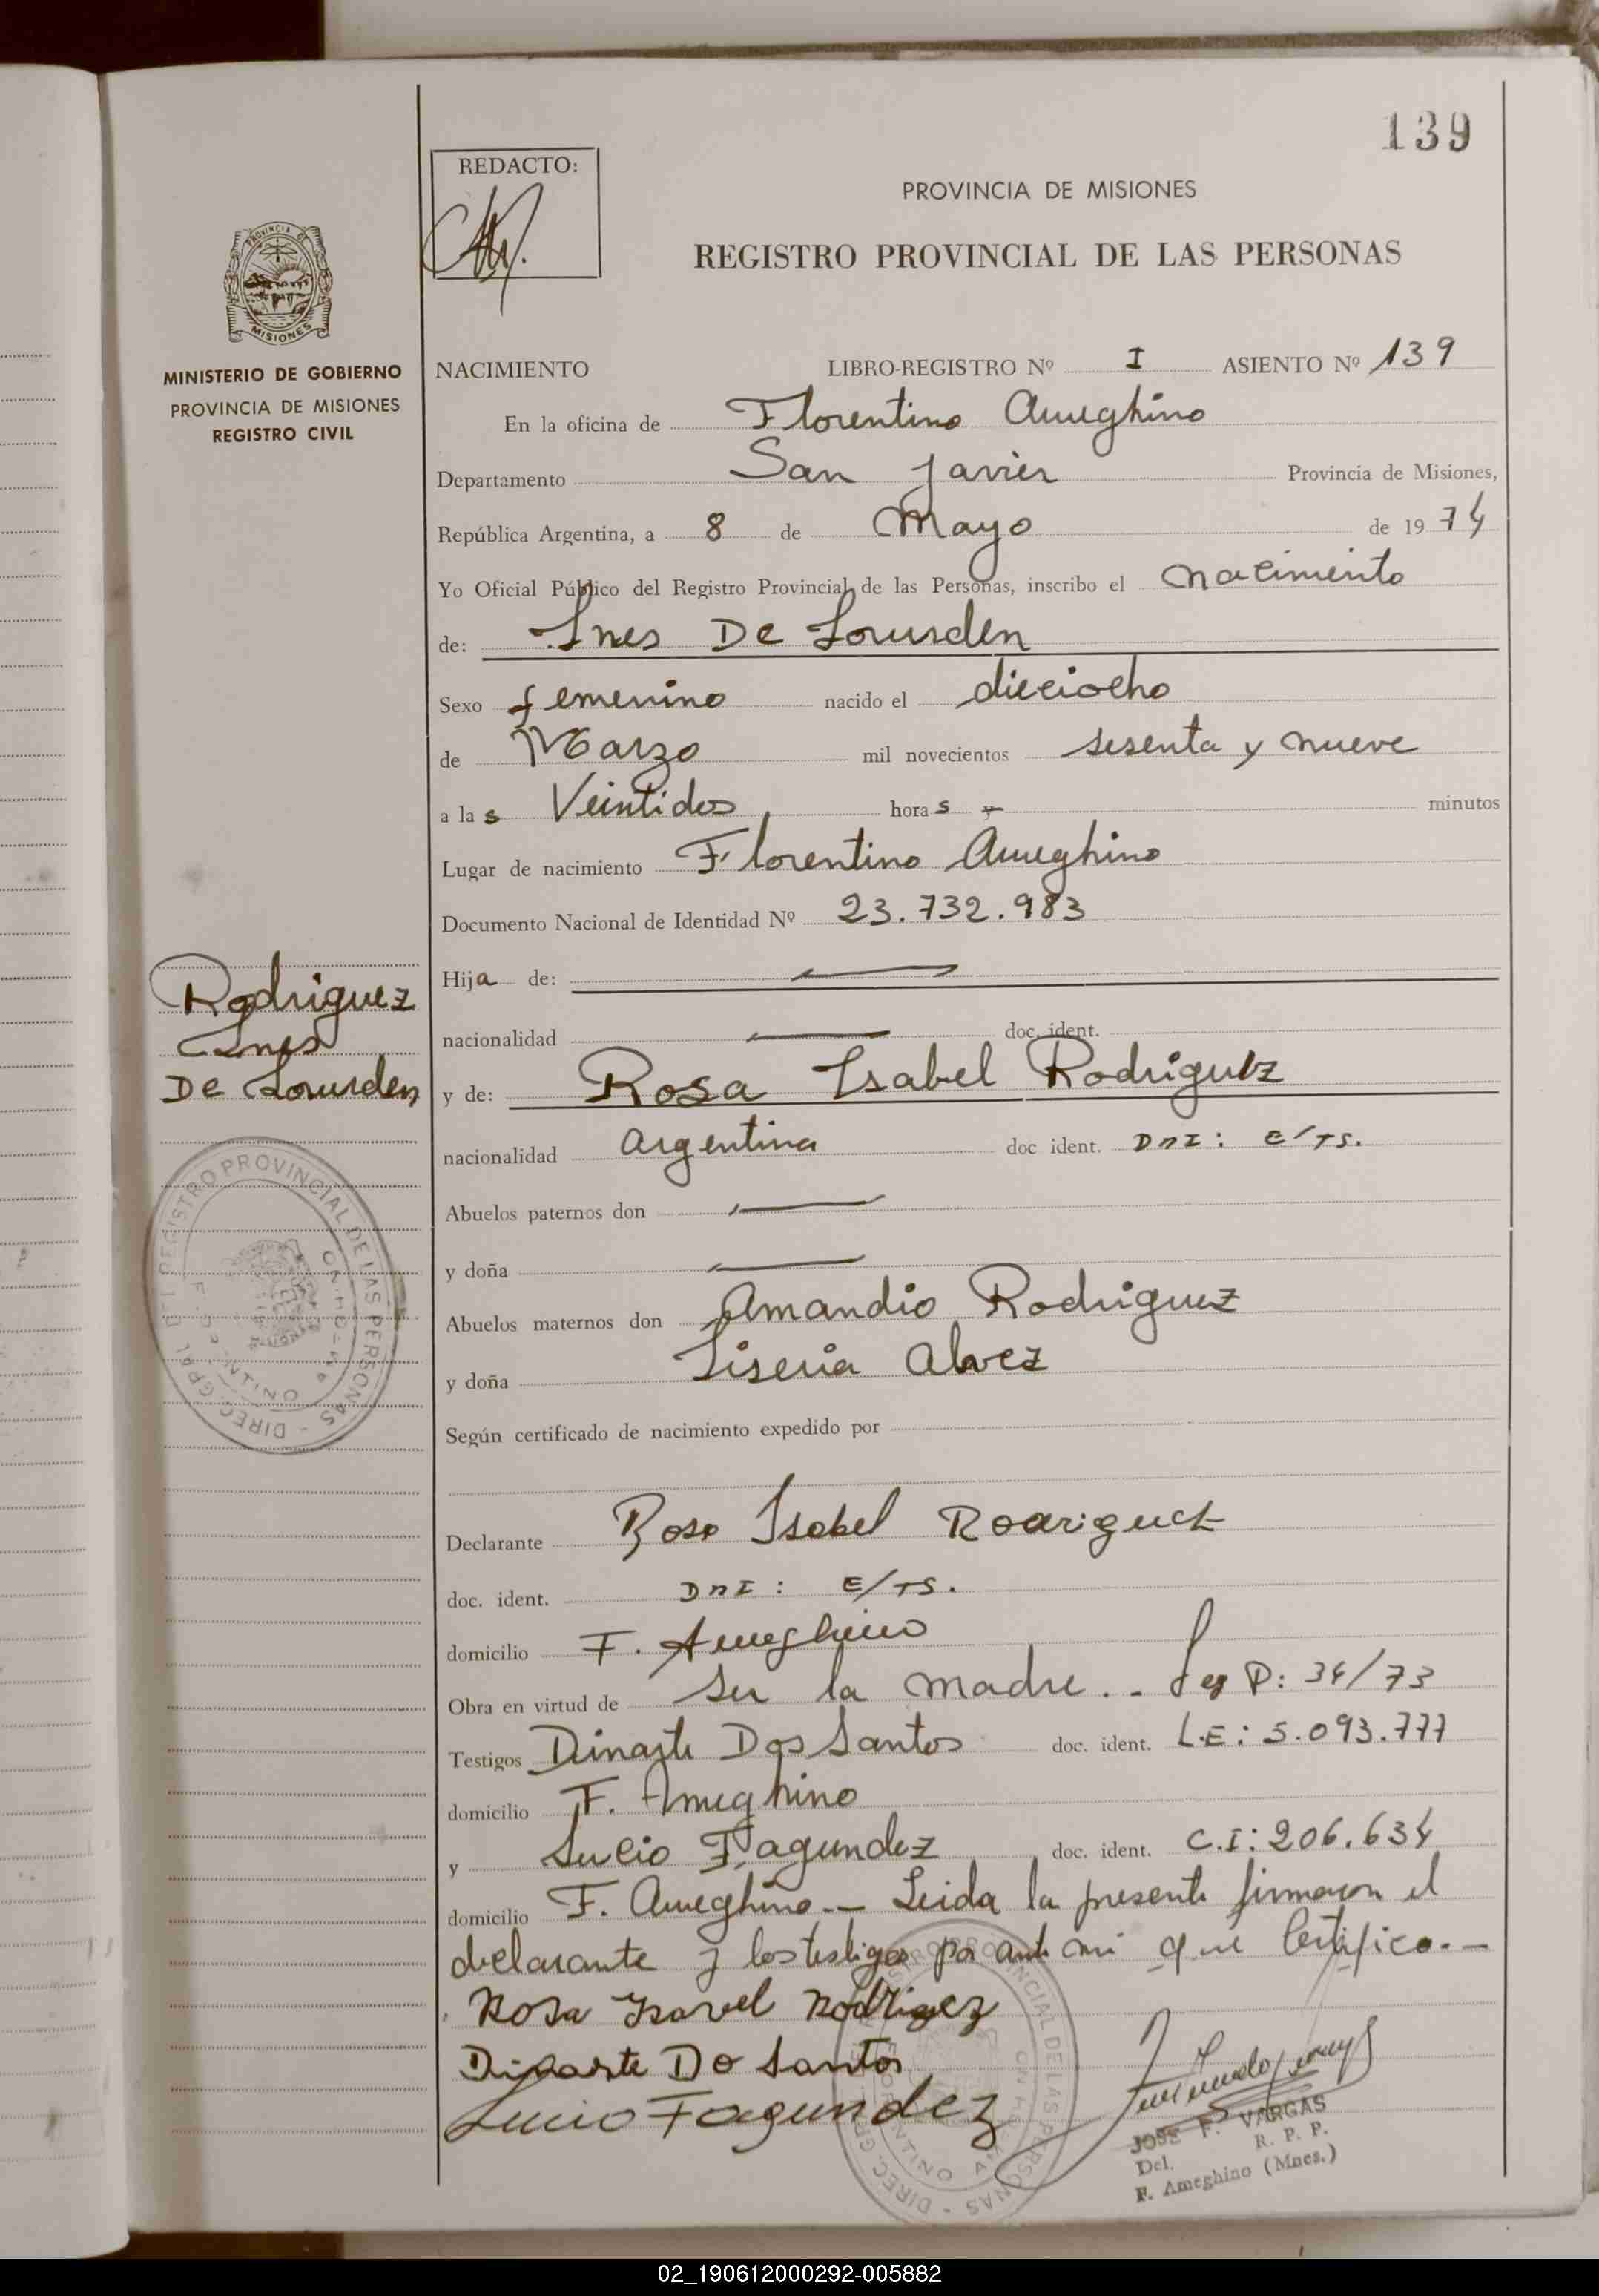 139
REDACTO:
PROVINCIA DE MISIONES
REGISTRO PROVINCIAL DE LAS PERSONAS
PROVINCIA DE
MISIONES
MINISTERIO DE GOBIERNO
PROVINCIA DE MISIONES
REGISTRO CIVIL
NACIMIENTO LIBRO-REGISTRO Nº I ASIENTO Nº 139
En la oficina de Florentino Ameghino
Departamento San Javier Provincia de Misiones,
República Argentina, a 8 de Mayo de 19 74
Yo Oficial Público del Registro Provincial de las Personas, inscribo el nacimiento
de: Ines De Lourden
Sexo femenino nacido el dieciocho
de Marzo mil novecientos sesenta y nueve
a las Veintidos horas - minutos
Lugar de nacimiento Florentino Ameghino
Documento Nacional de Identidad Nº 23.732.983
Hija de: —
nacionalidad — doc. ident.
Rodriguez
Ines
De Lourden
y de: Rosa Isabel Rodriguez
nacionalidad argentina doc ident. DNI: E/TS.
Abuelos paternos don —
y doña —
Abuelos maternos don Amandio Rodriguez
y doña Liseria Alvez
REGISTRO PROVINCIAL DE LAS PERSONAS - DIREC. GRAL. DEL
Según certificado de nacimiento expedido por
Declarante Rosa Isabel Rodriguez
doc. ident. DNI: E/TS.
domicilio F. Ameghino
Obra en virtud de ser la madre.- Leg P: 34/73
Testigos Dinarte Dos Santos doc. ident. L.E: 5.093.777
domicilio F. Ameghino
y Lucio Fagundez doc. ident. C.I: 206.634
domicilio F. Ameghino.- Leida la presente firmaron el
declarante y los testigos por ante mi que Certifico.-
Rosa Ysavel Rodrigez
Dinarte Do Santos
Lucio Fagundez
JOSE F. VARGAS
Del. R. P. P.
F. Ameghino (Mnes.)
02_190612000292-005882